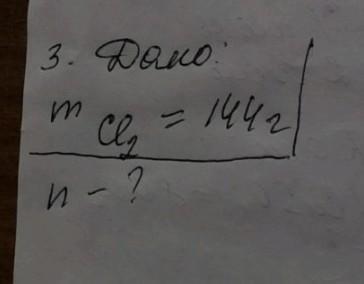 3. Дано:
m Cl₂ = 144г
n - ?